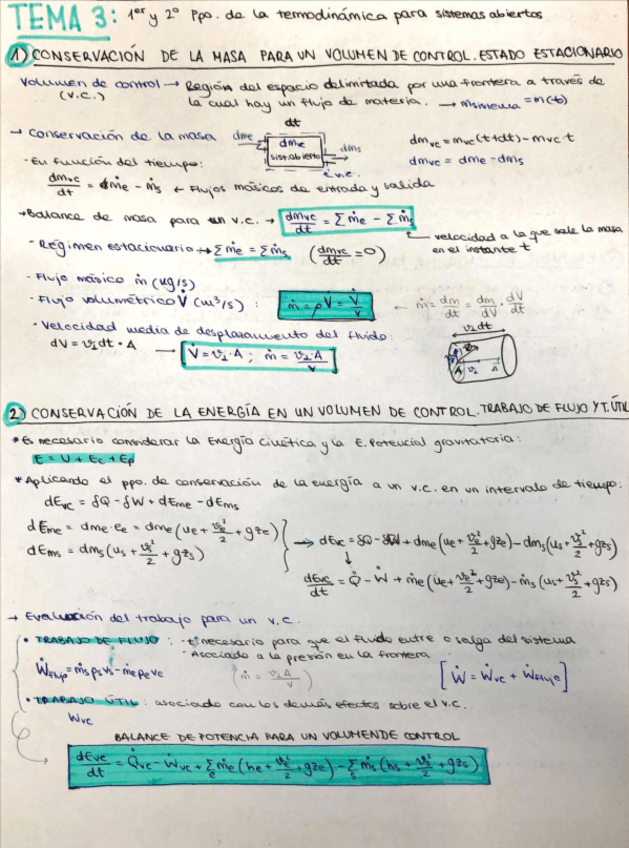 TEMA 3: 1er y 2º Ppo. de la termodinámica para sistemas abiertos
1) CONSERVACIÓN DE LA MASA PARA UN VOLUMEN DE CONTROL. ESTADO ESTACIONARIO
Volumen de control → Región del espacio delimitada por una frontera a través de
(v.c.) la cual hay un flujo de materia. → m sistema = m(t)
dt
→ Conservación de la masa dme dmvc sist. abierto dms v.c. dmvc = mvc(t+dt) - mvc·t
· En función del tiempo: dmvc = dme - dms
dmvc/dt = ṁe - ṁs ← Flujos másicos de entrada y salida
→ Balance de masa para un v.c. → dmvc/dt = Σṁe - Σṁs
velocidad a la que sale la masa
en el instante t
· Régimen estacionario → Σṁe = Σṁs (dmvc/dt = 0)
· Flujo másico ṁ (kg/s)
· Flujo volumétrico V̇ (m³/s) : ṁ = ρV̇ = V̇/v ← ṁ = dm/dt = dm/dV · dV/dt
· Velocidad media de desplazamiento del fluido:
dV = v₁dt · A → V̇ = v₁·A ; ṁ = v₁·A/v
v₁dt
A v₁ A
2) CONSERVACIÓN DE LA ENERGÍA EN UN VOLUMEN DE CONTROL. TRABAJO DE FLUJO Y T. ÚTIL
* Es necesario considerar la Energía cinética y la E. Potencial gravitatoria:
E = U + Ec + Ep
* Aplicando el ppo. de conservación de la energía a un v.c. en un intervalo de tiempo:
dEvc = δQ - δW + dEme - dEms
dEme = dme·ee = dme(ue + ve²/2 + gze)
dEms = dms(us + vs²/2 + gzs)
→ dEvc = δQ - δW + dme(ue + ve²/2 + gze) - dms(us + vs²/2 + gzs)
↓
dEvc/dt = Q̇ - Ẇ + ṁe(ue + ve²/2 + gze) - ṁs(us + vs²/2 + gzs)
→ Evaluación del trabajo para un v.c.
• TRABAJO DE FLUJO : · t. necesario para que el fluido entre o salga del sistema
· Asociado a la presión en la frontera
Ẇflujo = ṁs ps vs - ṁe pe ve (ṁ = v₁A/v) [Ẇ = Ẇvc + Ẇflujo]
• TRABAJO ÚTIL : asociado con los demás efectos sobre el v.c.
Wvc
BALANCE DE POTENCIA PARA UN VOLUMEN DE CONTROL
dEvc/dt = Q̇vc - Ẇvc + Σe ṁe(he + ve²/2 + gze) - Σs ṁs(hs + vs²/2 + gzs)